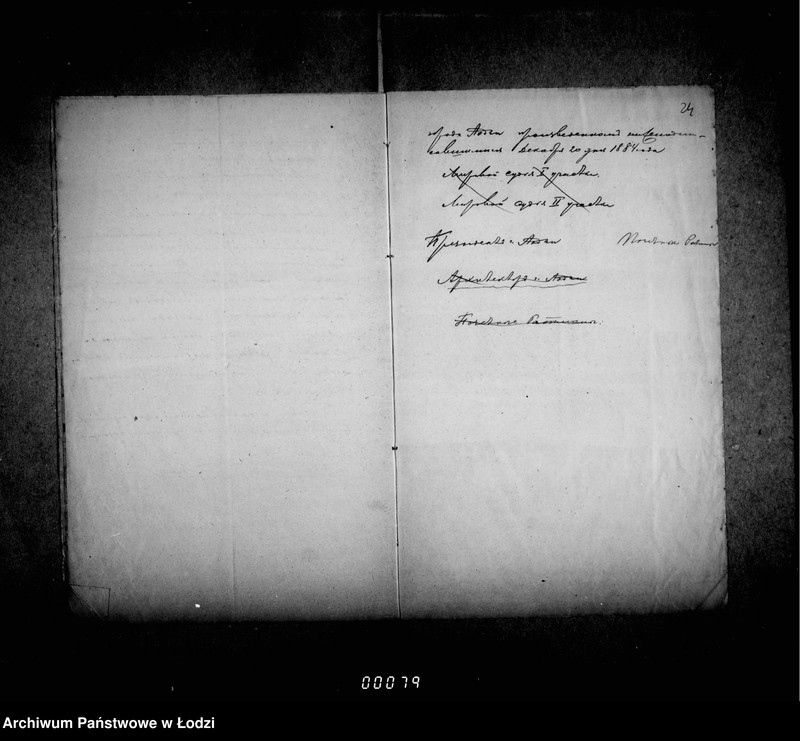 24
города Лодзи произведенному нижеподпи-
савшимися Декабря 20 дня 1884 года
Мировой судья I участка.
Мировой судья II участка
Президент г. Лодзи
Архитектор г. Лодзи
Почетные
00079
Archiwum Państwowe w Łodzi